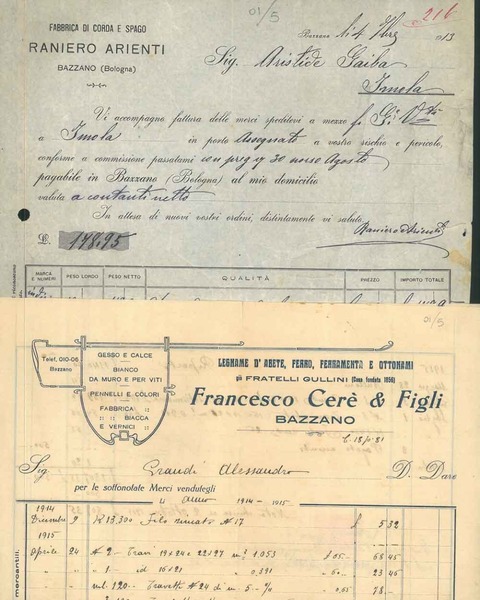 01/5
216
FABBRICA DI CORDA E SPAGO
RANIERO ARIENTI
BAZZANO (Bologna)
Bazzano, li 4 7bre 913
Sig. Aristide Gaiba
Imola
Vi accompagno fattura delle merci speditevi a mezzo f
a Imola in porto Assegnati a vostro rischio e pericolo,
conforme a commissione passatami con 30 Agosto
payabile in Bazzano (Bologna) al mio domicilio
valuta a contanti netto
In attesa di nuovi vostri ordini, distintamente vi saluta.
Raniero Arienti
L. 178,95
MARCA E NUMERI PESO LORDO PESO NETTO QUALITÀ PREZZO IMPORTO TOTALE
01/5
Telef. 010-06
Bazzano
GESSO E CALCE
BIANCO
DA MURO E PER VITI
PENNELLI E COLORI
FABBRICA
BIACCA
E VERNICI
LEGNAME D'ABETE, FERRO, FERRAMENTA E OTTONAMI
FRATELLI GULLINI (Casa fondata 1856)
Francesco Cerè & Figli
BAZZANO
Sig. Grandi Alessandro D. Dare
per le sottonotate Merci vendutegli
anno 1914-1915
1914
Dicembre 9 K 13,300 Filo N 17 £ 5 32
1915
Aprile 24 N 2 - Travi 19x24 e 22x27 m³ 1.053 £ 65 - 68 45
" 1 - id 16x21 " 0.391 " 60 - 23 45
ml 120 - Travetti N 24 di m. 5 - " 0,65 78 -
mercantili.